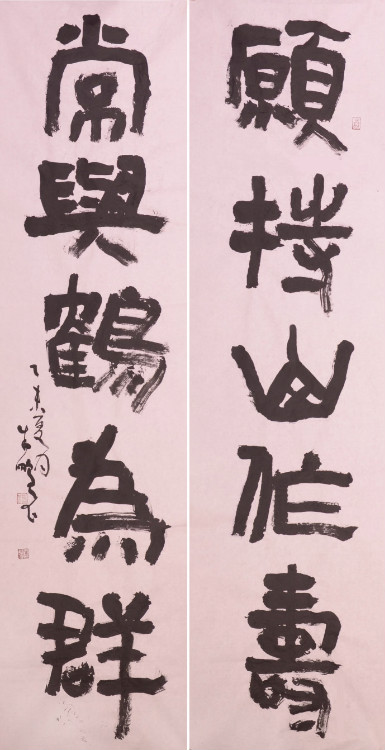 願持山作壽
常與鶴為群
乙未夏月